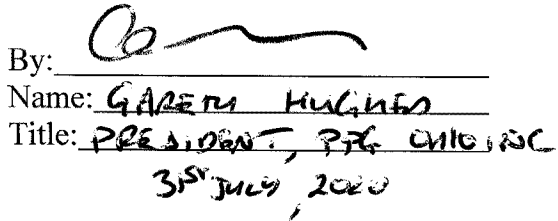 By:
Name: GARETH HUGHES
Title: PRESIDENT, PPG OHIO, INC
31ST JULY, 2020